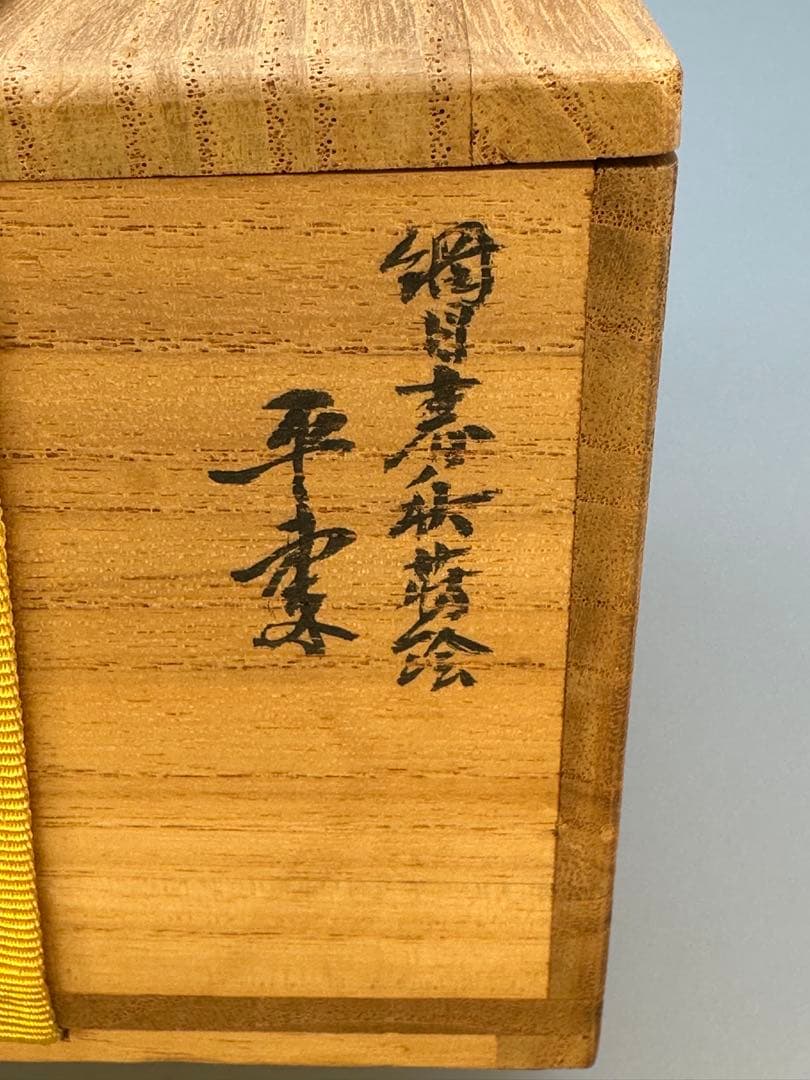 網目春秋蒔絵
平棗